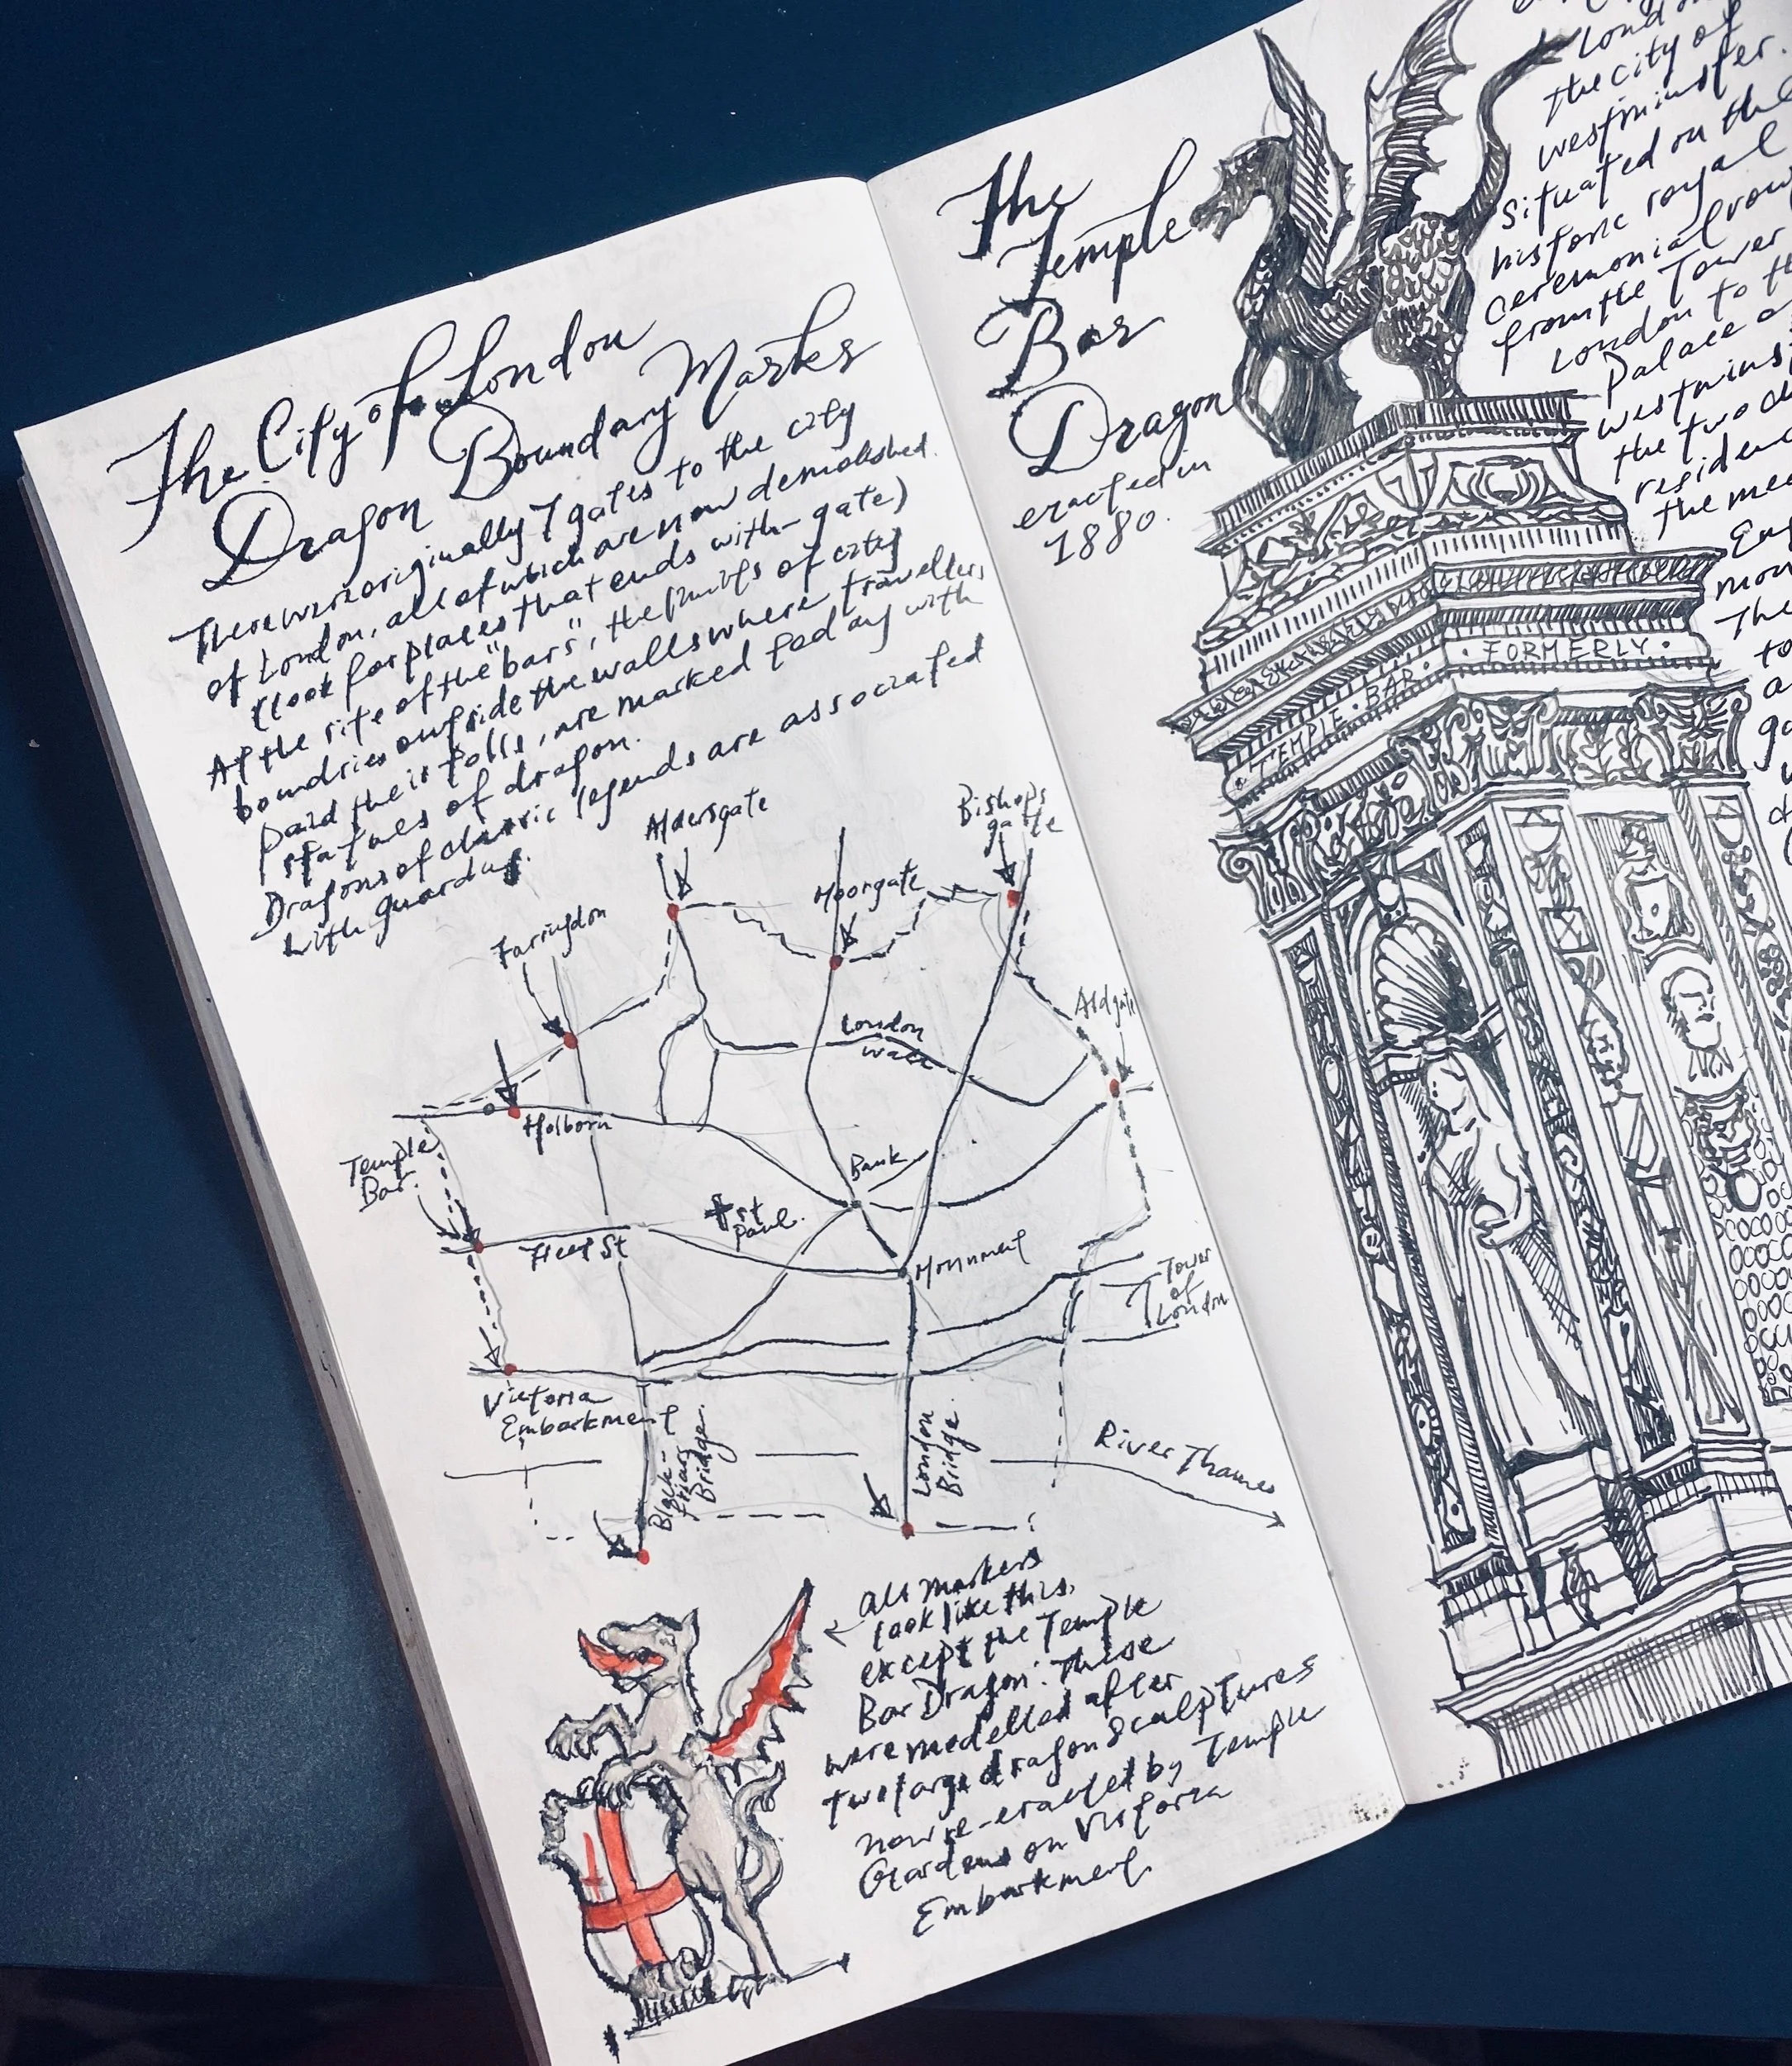 The City of London
Dragon Boundary Marks
There were originally 7 gates to the city
of London, all of which are now demolished.
(look for places that ends with -gate)
At the site of the "bars", the limits of city
boundries outside the walls where travellers
paid their tolls, are marked today with
statues of dragon.
Dragons of classic legends are associated
with guarding.
Aldersgate
Bishops
gate
Moorgate
Farringdon
Aldgate
London
Wall
Holborn
Temple
Bar.
Bank
St
Paul.
Fleet St
Monument
Tower
of
London
Victoria
Embarkment
Black-
friars
Bridge.
London
Bridge.
River Thames
All markers
look like this,
except the Temple
Bar Dragon. These
were modelled after
two large dragon sculptures
now re-eracted by Temple
Gardens on Victoria
Embarkment
The
Temple
Bar
Dragon
eracted in
1880.
London
the city of
westminster.
Situated on the
historic royal
ceremonial
from the Tower
London to th
Palace
westmins
the two
residen
the
TEMPLE · BAR ·
· FORMERLY ·